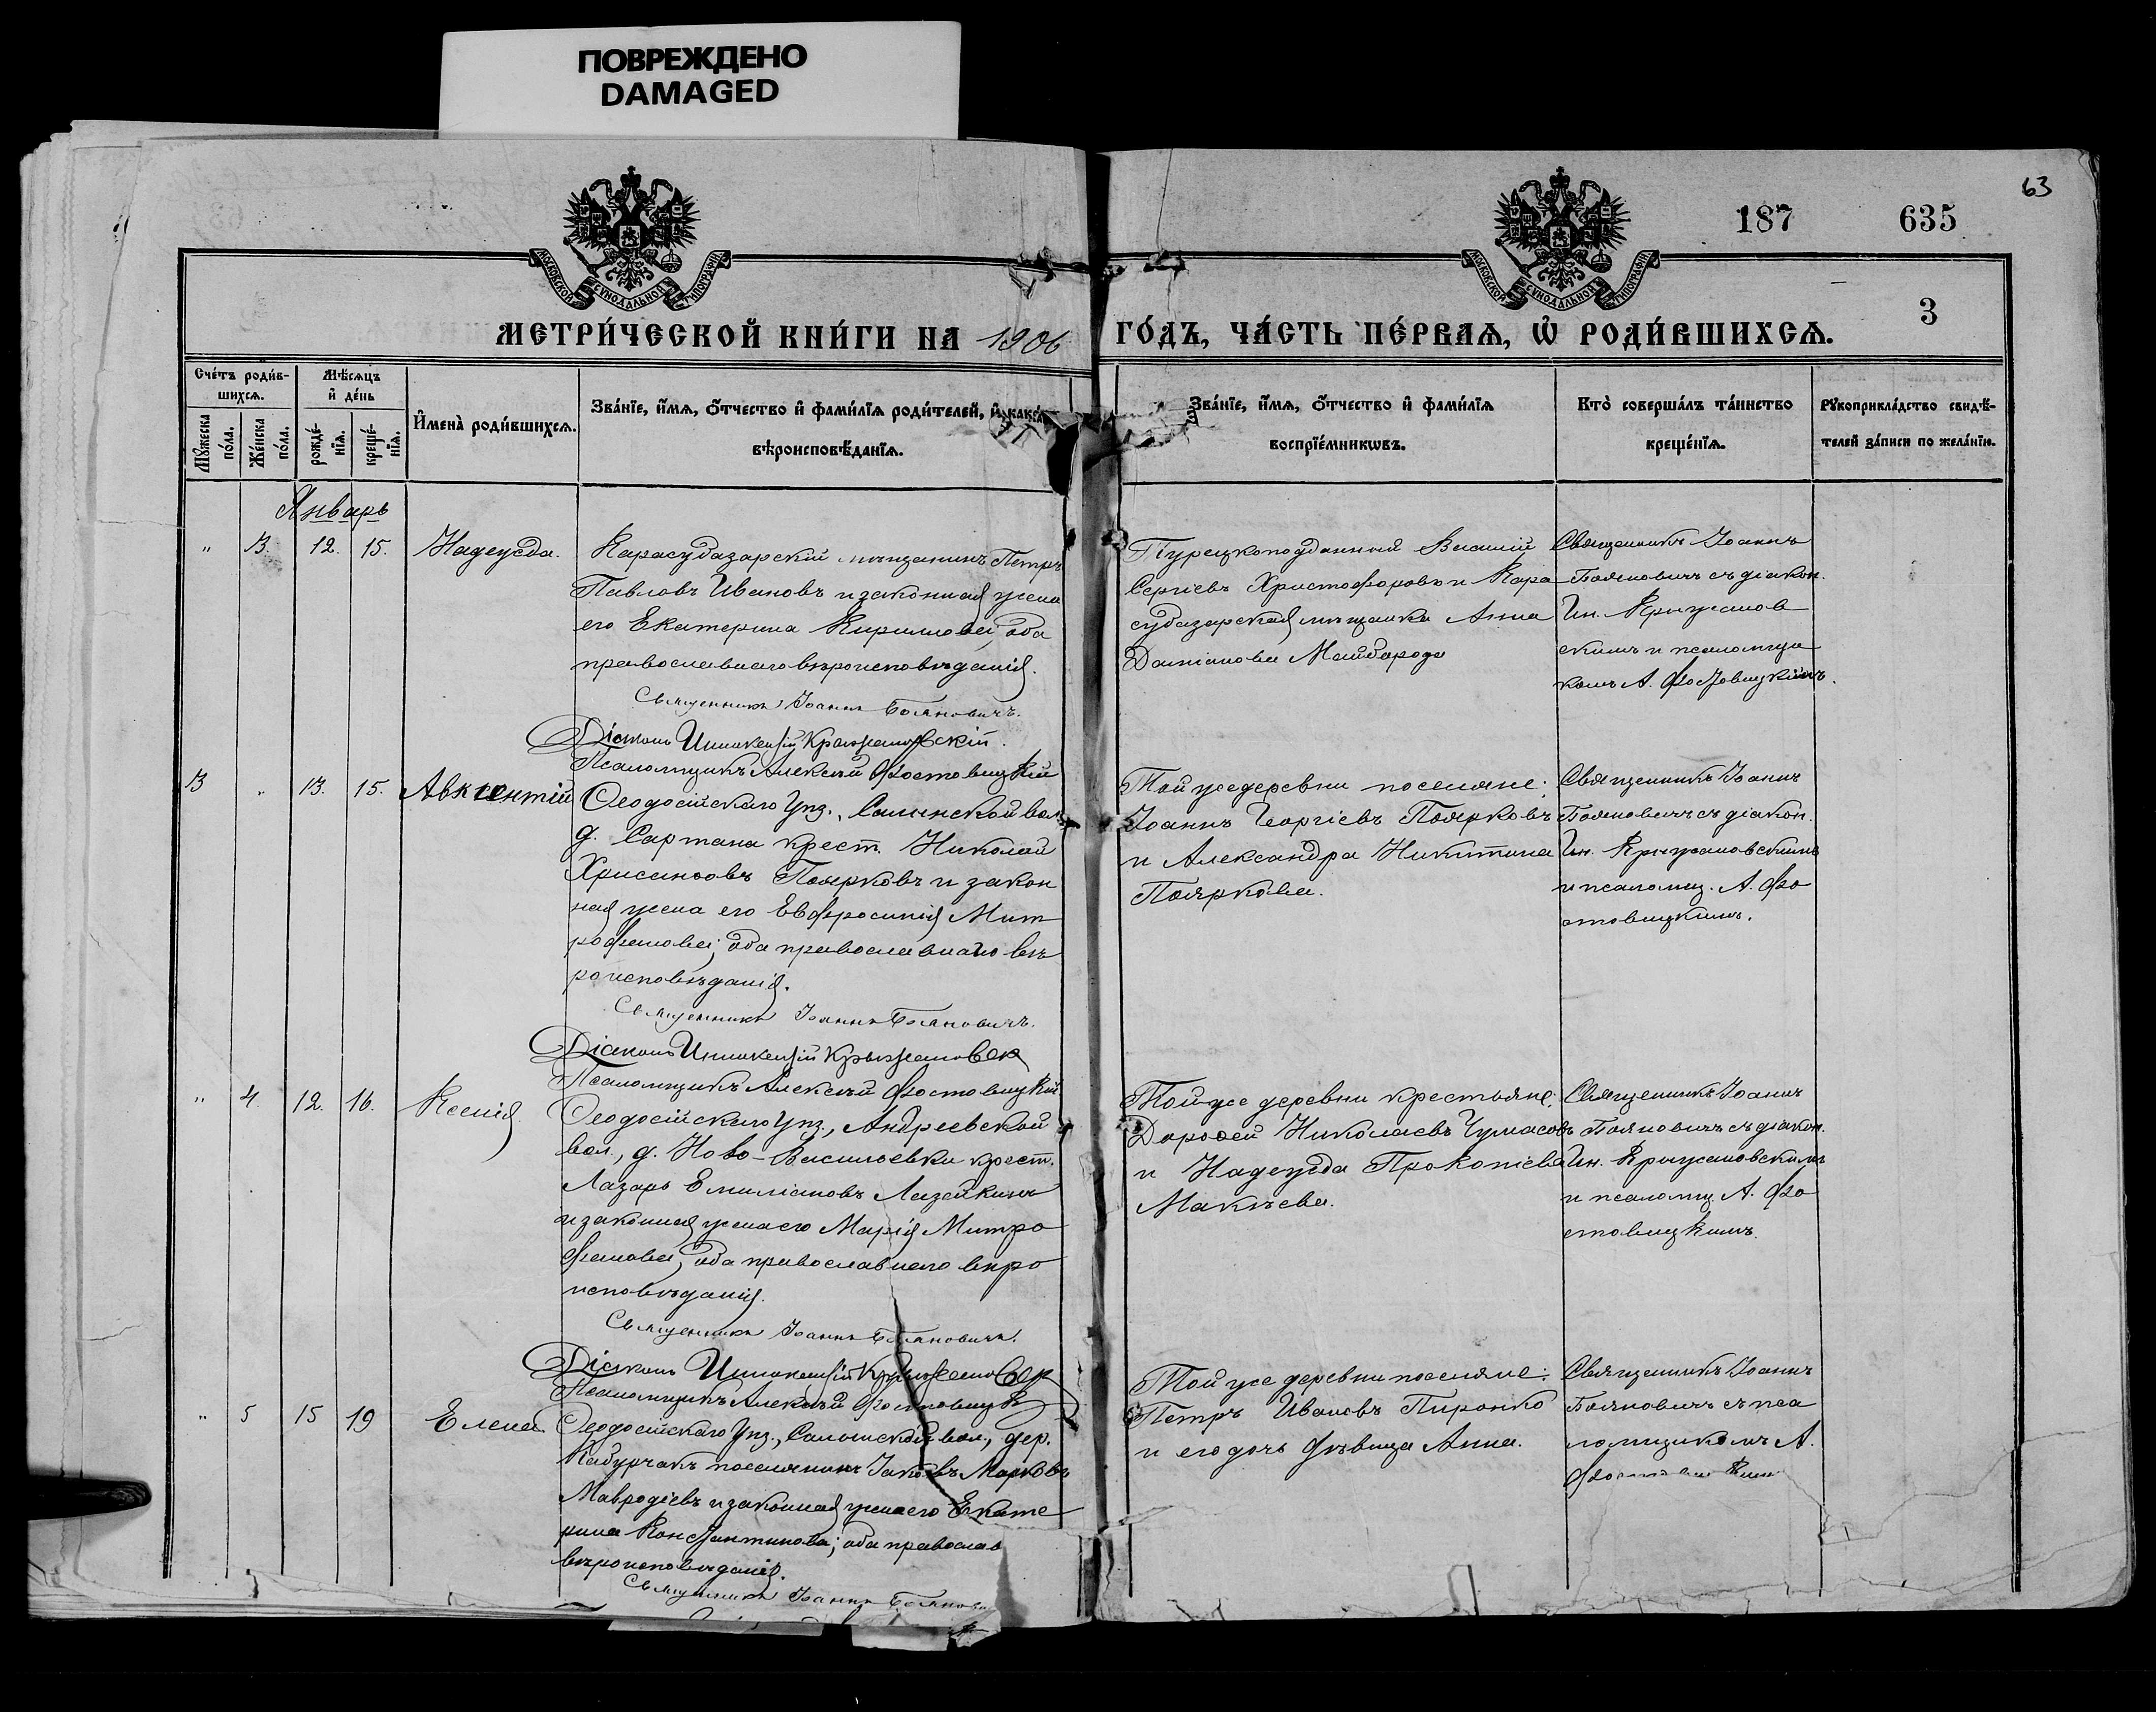 ПОВРЕЖДЕНО
DAMAGED
63
187 635
3
МОСКОВСКОЙ СѴНОДАЛЬНОЙ ТИПОГРАФІИ
МОСКОВСКОЙ СѴНОДАЛЬНОЙ ТИПОГРАФІИ
МЕТРИ́ЧЕСКОЙ КНИ́ГИ НА 1906 ГО́ДЪ, ЧА́СТЬ ПЕ́РВАѦ, Ѡ РОДИ́ВШИХСѦ.
Сче́тъ роди́в-
шихсѧ.
Мꙋжеска по́ла.
Же́нска по́ла.
Мѣ́сѧцъ и де́нь
рожде́-
нїѧ.
креще́-
нїѧ.
Имена̀ роди́вшихсѧ.
Зва́нїе, и́мѧ, ѻ́тчество и фами́лїѧ роди́телей, и како́й
вѣроисповѣ́данїѧ.
Зва́нїе, и́мѧ, ѻ́тчество и фами́лїѧ
воспрїе́мникѡвъ.
Кто̀ соверша́лъ та́инство
креще́нїѧ.
Рꙋкоприкла́дство свидѣ́-
телей за́писи по жела́нїю.
Январь
" 3. 12. 15. Надежда.
Карасубазарскій мѣщанинъ Петръ
Павловъ Ивановъ и законная жена
его Екатерина Кирилова, оба
православнаго вѣроисповѣданія.
Священникъ Іоаннъ Бояновичъ.
Діаконъ Иннокентій Крыжановскій.
Псаломщикъ Алексѣй Фостовицкій
Турецкоподданный Василій
Сергіевъ Христофоровъ и Кара
субазарская мѣщанка Анна
Даміанова Майборода
Священникъ Іоаннъ
Бояновичъ съ діакон.
Ин. Крижанов
скимъ и псаломщи
комъ А. Фостовицкимъ.
3 " 13. 15. Авксентій
Ѳеодосійскаго Уѣз., Салынской вол.
д. Сартана крест. Николай
Хрисанѳовъ Поярковъ и закон
ная жена его Евфросинія Мит
рофанова; оба православнаго вѣ
роисповѣданія.
Священникъ Іоаннъ Бояновичъ.
Діаконъ Иннокентій Крыжановск
Псаломщикъ Алексѣй Фостовицкій
Той же деревни поселяне:
Іоаннъ Георгіевъ Поярковъ
и Александра Никитина
Пояркова.
Священникъ Іоаннъ
Бояновичъ съ діакон.
Ин. Крижановскимъ
и псаломщ. А. Фо
стовицкимъ.
" 4. 12. 16. Ксенія.
Ѳеодосійскаго Уѣз., Андреевской
вол., д. Ново-Васильевки крест.
Лазарь Емиліановъ Лазейкинъ
и законная жена его Марія Митро
фанова, оба православнаго вѣро
исповѣданія.
Священникъ Іоаннъ Бояновичъ.
Діаконъ Иннокентій Крыжановск
Псаломщикъ Алексѣй Фостовицк
Той же деревни крестьяне:
Дороѳей Николаевъ Чумасовъ
и Надежда Прокопіева
Макѣева.
Священникъ Іоаннъ
Бояновичъ съ діакон.
Ин. Крижановскимъ
и псаломщ. А. Фо
стовицкимъ.
" 5 15 19 Елена.
Ѳеодосійскаго Уѣз., Салынской вол., дер.
Кабурчакъ поселянинъ Іаковъ Марковъ
Мавродіевъ и законная жена его Екате
рина Константинова; оба православ
вѣроисповѣданія.
Священникъ Іоаннъ Боянов
Той же деревни поселяне:
Петръ Ивановъ Пиронко
и его дочь дѣвица Анна.
Священникъ Іоаннъ
Бояновичъ съ пса
ломщикомъ А.